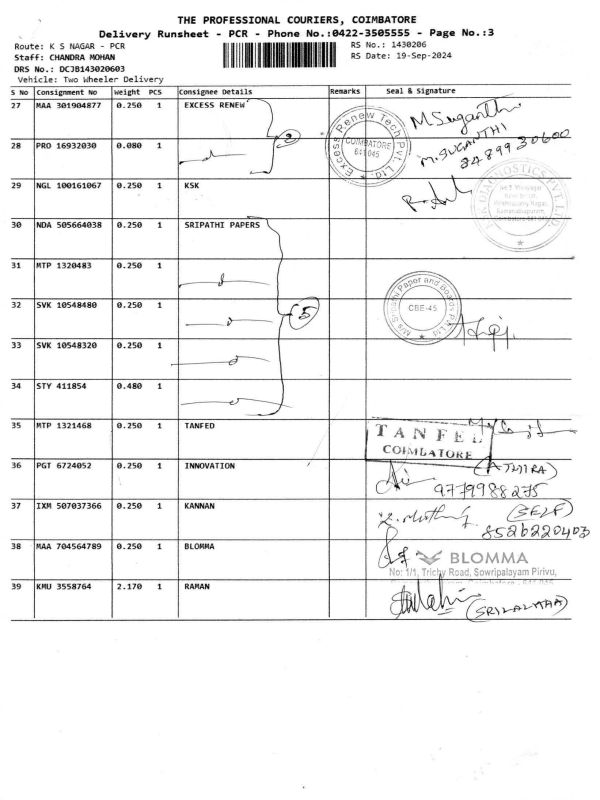 THE PROFESSIONAL COURIERS, COIMBATORE
Delivery Runsheet - PCR - Phone No.:0422-3505555 - Page No.:3
Route: K S NAGAR - PCR RS No.: 1430206
Staff: CHANDRA MOHAN RS Date: 19-Sep-2024
DRS No.: DCJB143020603
Vehicle: Two Wheeler Delivery
S No Consignment No Weight PCS Consignee Details Remarks Seal & Signature
27 MAA 301904877 0.250 1 EXCESS RENEW
Excess Renew Tech Pvt. Ltd.
COIMBATORE
641 045
M.Suganthi
M.SUGANTHI
8489930600
28 PRO 16932030 0.080 1
2
29 NGL 100161067 0.250 1 KSK
DIAGNOSTICS PVT LTD
30 NDA 505664038 0.250 1 SRIPATHI PAPERS
31 MTP 1320483 0.250 1
M/s Sripathi Paper and Boards Pvt Ltd
CBE-45
32 SVK 10548480 0.250 1
5
33 SVK 10548320 0.250 1
34 STY 411854 0.480 1
35 MTP 1321468 0.250 1 TANFED
TANFED
COIMBATORE
36 PGT 6724052 0.250 1 INNOVATION
(ATHIRA)
9779988275
37 IXM 507037366 0.250 1 KANNAN
(SELF)
8526220403
38 MAA 704564789 0.250 1 BLOMMA
BLOMMA
No: 1/1, Trichy Road, Sowripalayam Pirivu,
39 KMU 3558764 2.170 1 RAMAN